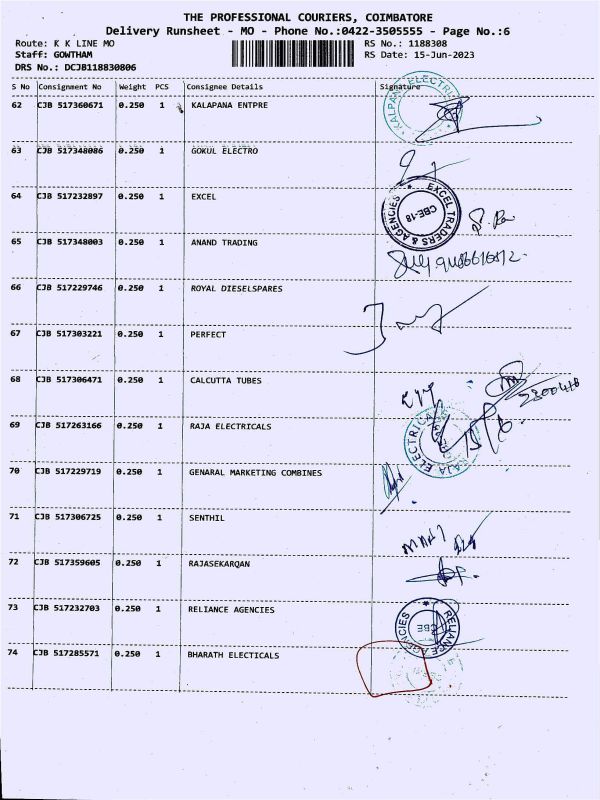 THE PROFESSIONAL COURIERS, COIMBATORE
Delivery Runsheet - MO - Phone No.:0422-3505555 - Page No.:6
Route: K K LINE MO RS No.: 1188308
Staff: GOWTHAM RS Date: 15-Jun-2023
DRS No.: DCJB118830806
S No Consignment No Weight PCS Consignee Details Signature
62 CJB 517360671 0.250 1 KALAPANA ENTPRE
63 CJB 517348086 0.250 1 GOKUL ELECTRO
64 CJB 517232897 0.250 1 EXCEL
EXCEL TRADERS & AGENCIES
CBE-18
65 CJB 517348003 0.250 1 ANAND TRADING
66 CJB 517229746 0.250 1 ROYAL DIESELSPARES
67 CJB 517303221 0.250 1 PERFECT
68 CJB 517306471 0.250 1 CALCUTTA TUBES
69 CJB 517263166 0.250 1 RAJA ELECTRICALS
70 CJB 517229719 0.250 1 GENARAL MARKETING COMBINES
71 CJB 517306725 0.250 1 SENTHIL
72 CJB 517359605 0.250 1 RAJASEKARQAN
73 CJB 517232703 0.250 1 RELIANCE AGENCIES
RELIANCE AGENCIES
CBE
74 CJB 517285571 0.250 1 BHARATH ELECTICALS